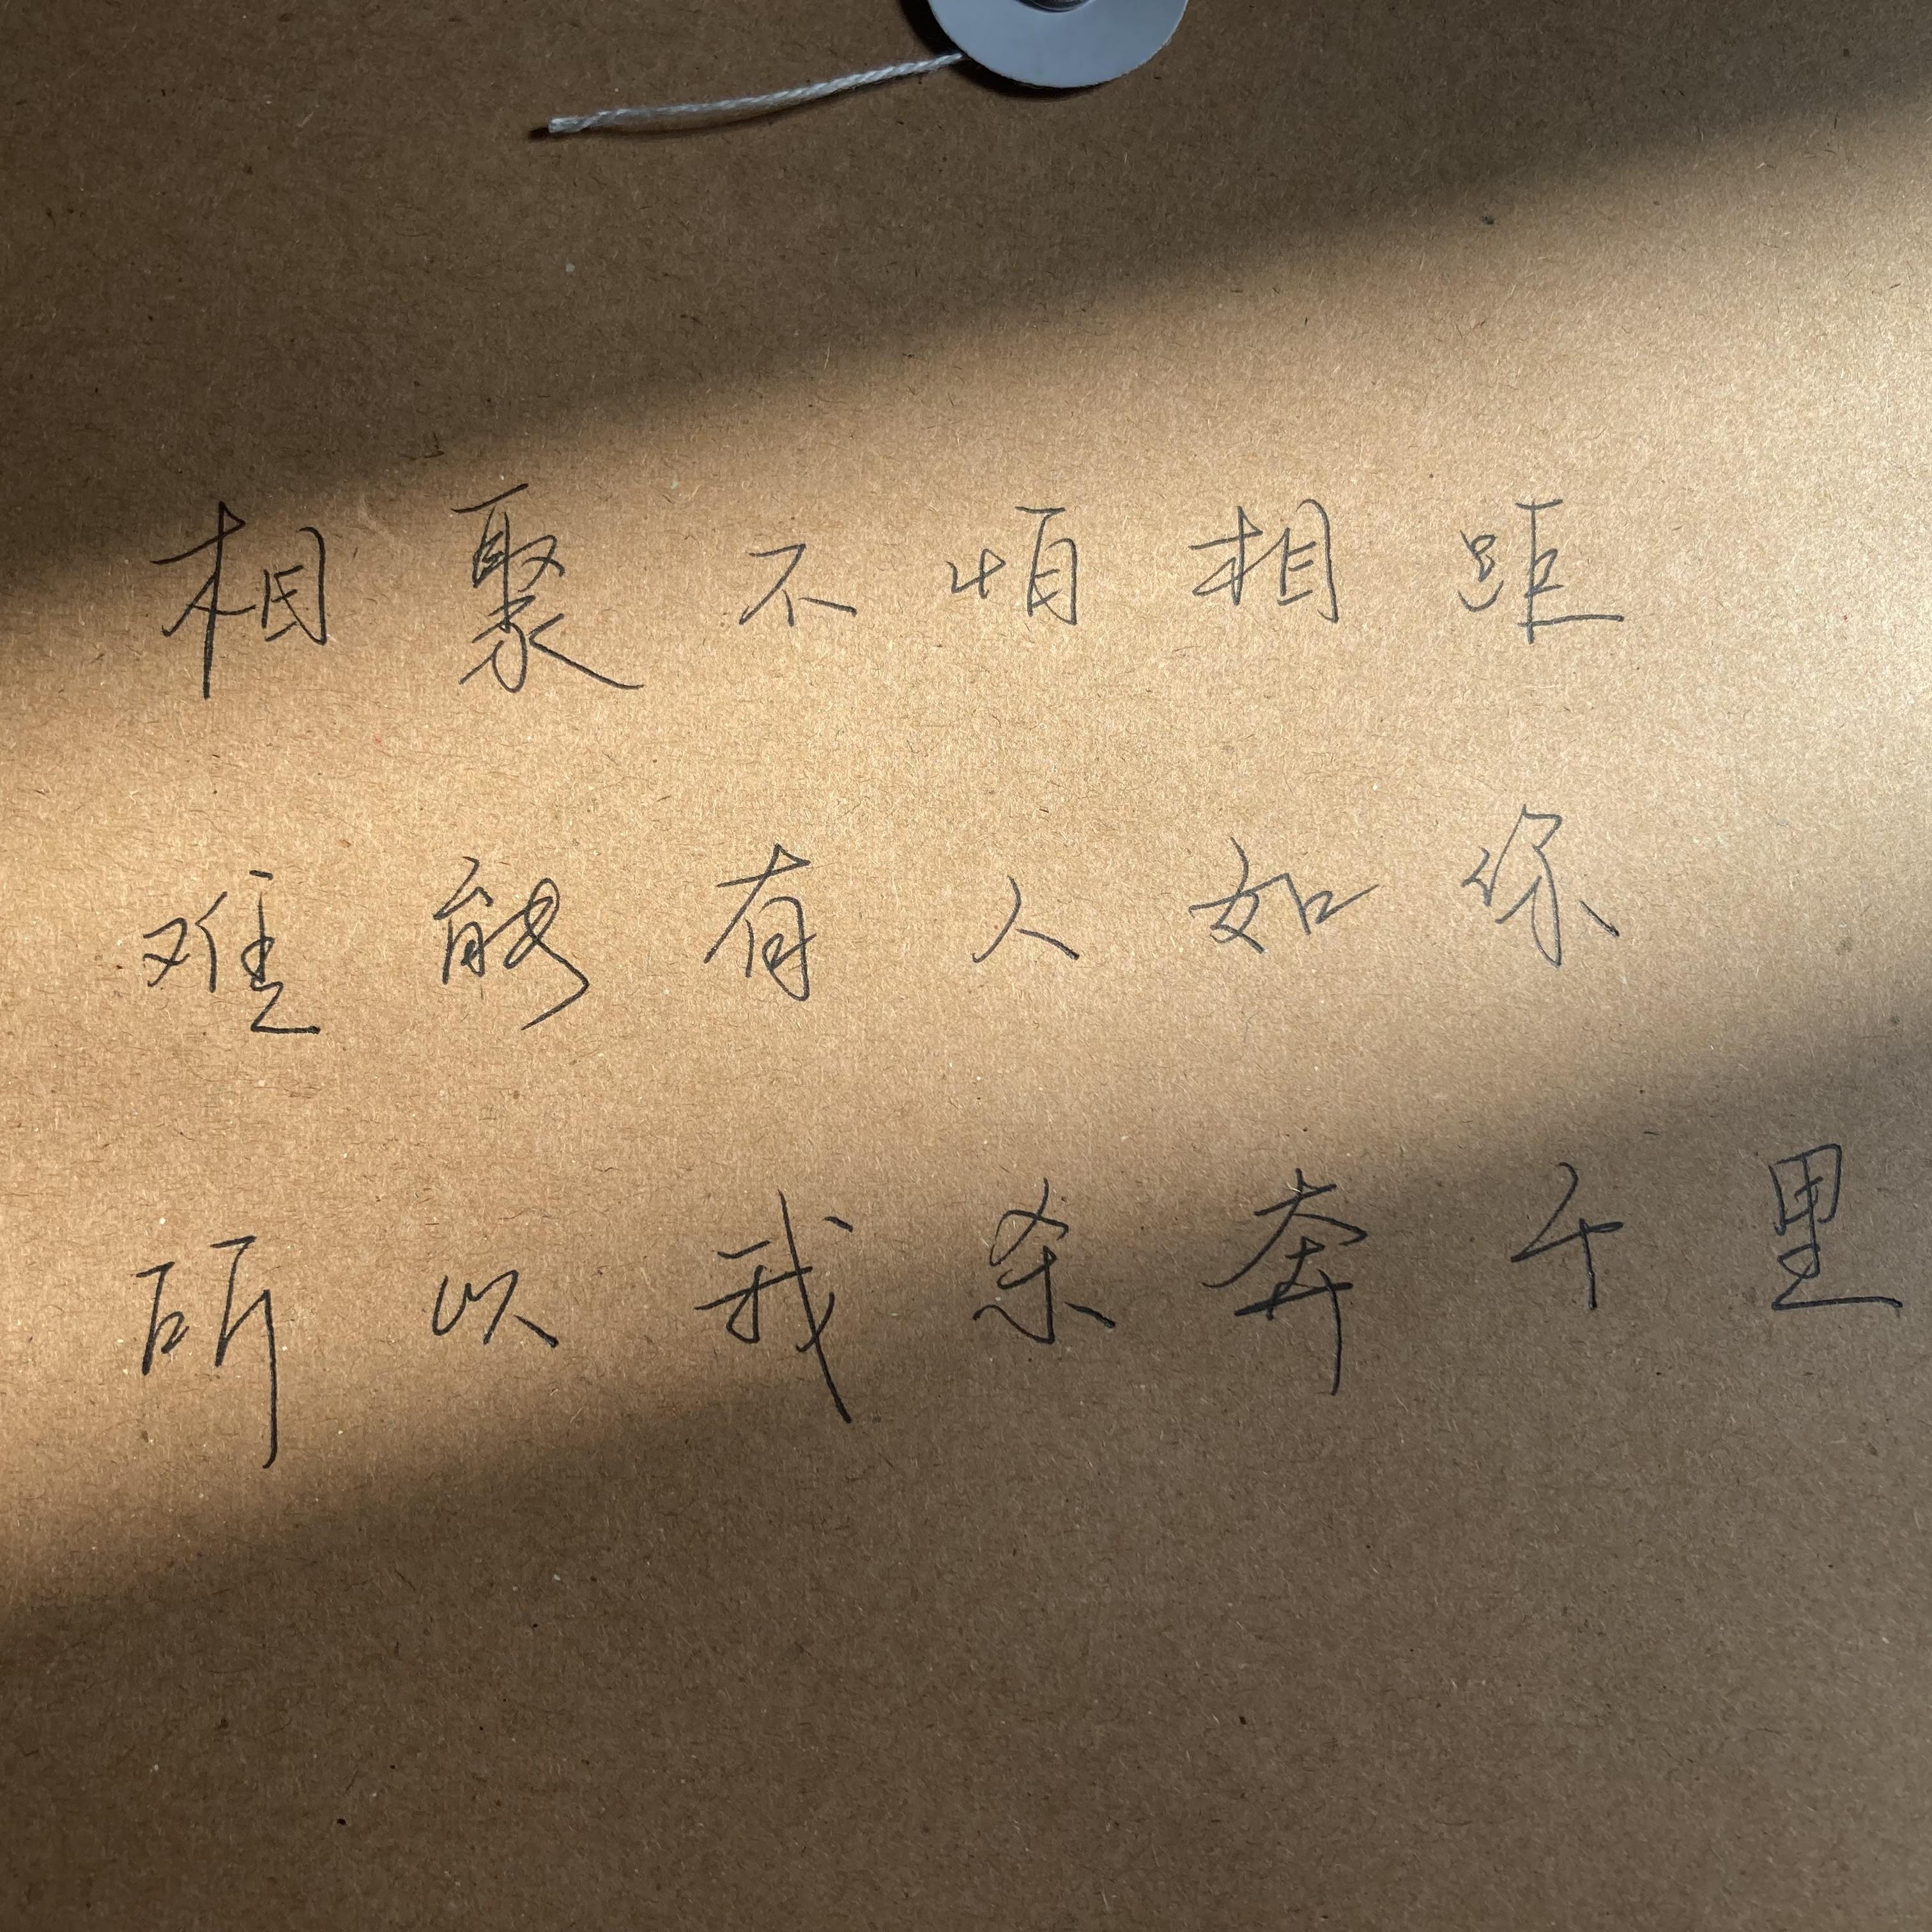 相聚不怕相距
难能有人如你
所以我杀奔千里